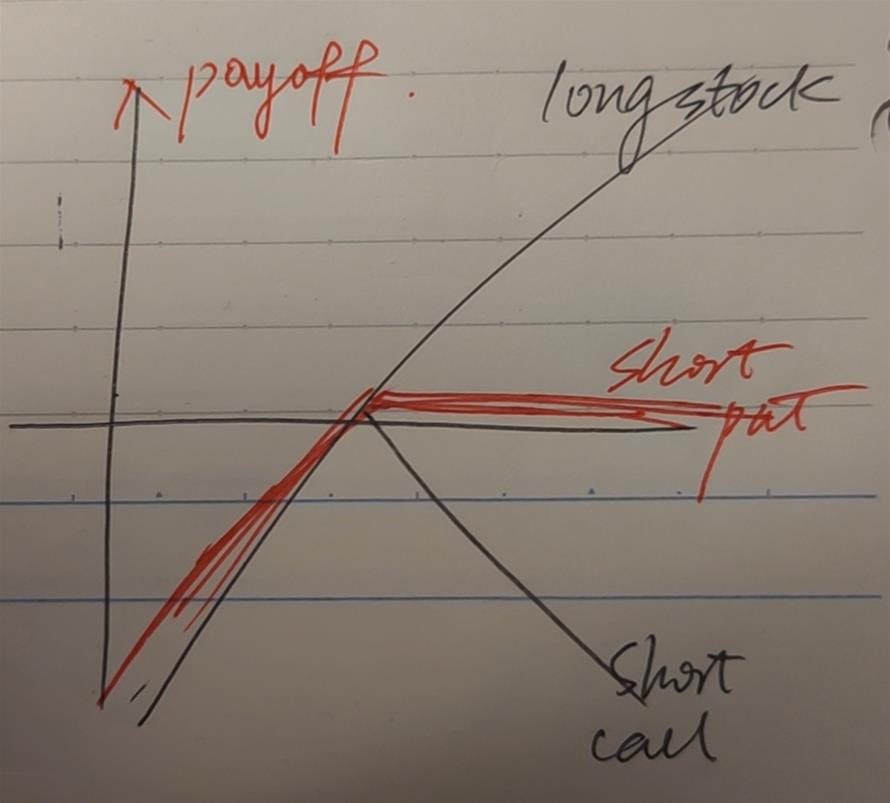 payoff
long stock
short
put
short
call